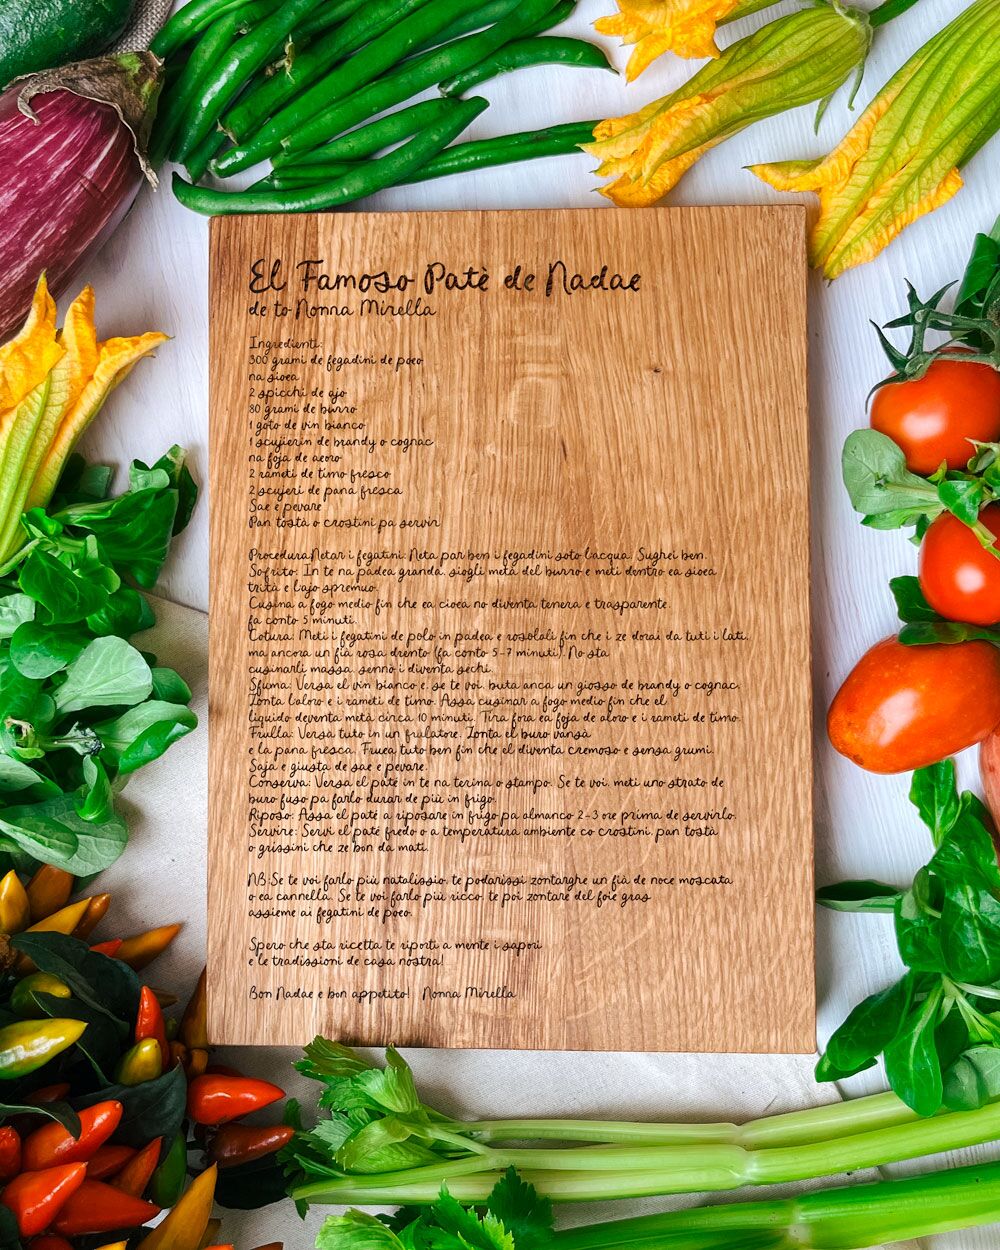 El Famoso Patè de Nadae
de to Nonna Mirella
Ingredienti:
300 grami de fegadini de poeo
na sioea
2 spicchi de ajo
80 grami de burro
1 goto de vin bianco
1 scujierin de brandy o cognac
na foja de aeoro
2 rameti de timo fresco
2 scujeri de pana fresca
Sae e pevare
Pan tostà o crostini pa servir
Procedura:Netar i fegatini: Neta par ben i fegadini soto l'acqua. Sughei ben.
Sofrito: In te na padea granda, siogli metà del burro e meti dentro ea sioea
trità e l'ajo spremuo.
Cusina a fogo medio fin che ea cioea no diventa tenera e trasparente.
fa conto 5 minuti.
Cotura: Meti i fegatini de polo in padea e rosolali fin che i ze dorai da tuti i lati,
ma ancora un fià rosa drento (fa conto 5-7 minuti). No sta
cusinarli massa, sennò i diventa sechi.
Sfuma: Versa el vin bianco e, se te voi, buta anca un giosso de brandy o cognac.
Zonta l'aloro e i rameti de timo. Assa cusinar a fogo medio fin che el
liquido deventa metà circa 10 minuti. Tira fora ea foja de aloro e i rameti de timo.
Frulla: Versa tuto in un frulatore. Zonta el buro vansà
e la pana fresca. Fruea tuto ben fin che el diventa cremoso e sensa grumi.
Saja e giusta de sae e pevare.
Conserva: Versa el paté in te na terina o stampo. Se te voi, meti uno strato de
buro fuso pa farlo durar de più in frigo.
Riposo: Assa el paté a riposare in frigo pa almanco 2-3 ore prima de servirlo.
Servire: Servi el paté fredo o a temperatura ambiente co crostini, pan tostà
o grissini che ze bon da mati.
NB:Se te voi farlo più natalissio, te podarissi zontarghe un fià de noce moscata
o ea cannella. Se te voi farlo più ricco, te poi zontare del foie gras
assieme ai fegatini de poeo.
Spero che sta ricetta te riporti a mente i sapori
e le tradissioni de casa nostra!
Bon Nadae e bon appetito! Nonna Mirella